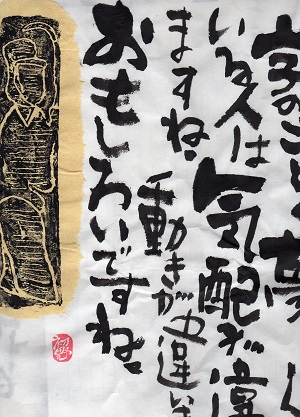 字のこと夢
いる人は気配が違
ますね。動きが違い
おもしろいですね。